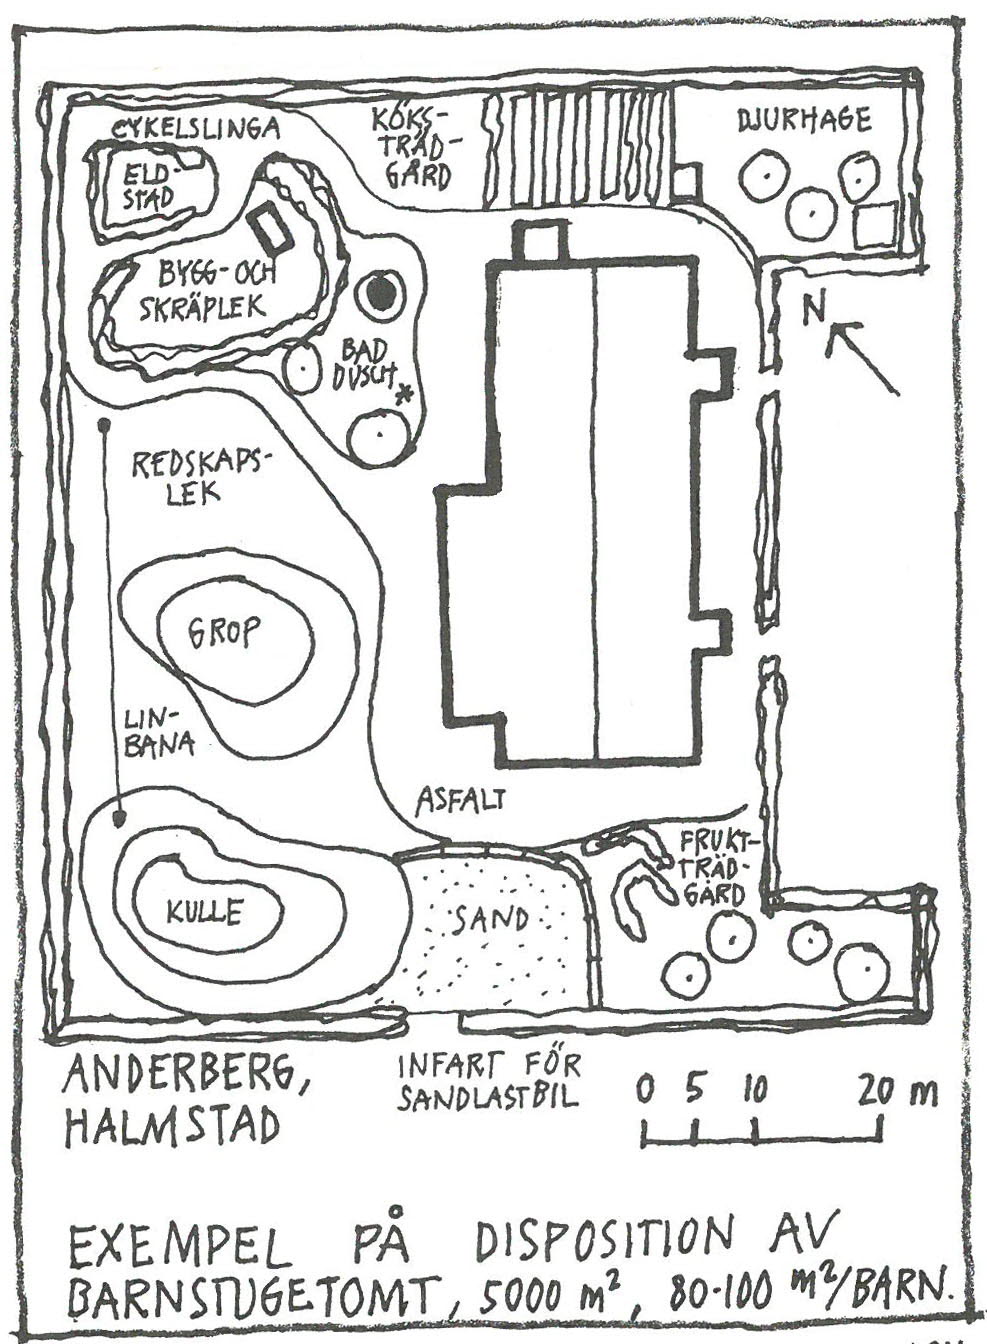 CYKELSLINGA
ELD-
STAD
KÖKS-
TRÄD-
GÅRD
DJURHAGE
BYGG- OCH
SKRÄPLEK
BAD
DUSCH
N
REDSKAPS-
LEK
GROP
LIN-
BANA
ASFALT
KULLE
SAND
FRUKT-
TRÄD-
GÅRD
ANDERBERG,
HALMSTAD
INFART FÖR
SANDLASTBIL
0 5 10 20 m
EXEMPEL PÅ DISPOSITION AV
BARNSTUGETOMT, 5000 m², 80-100 m²/BARN.